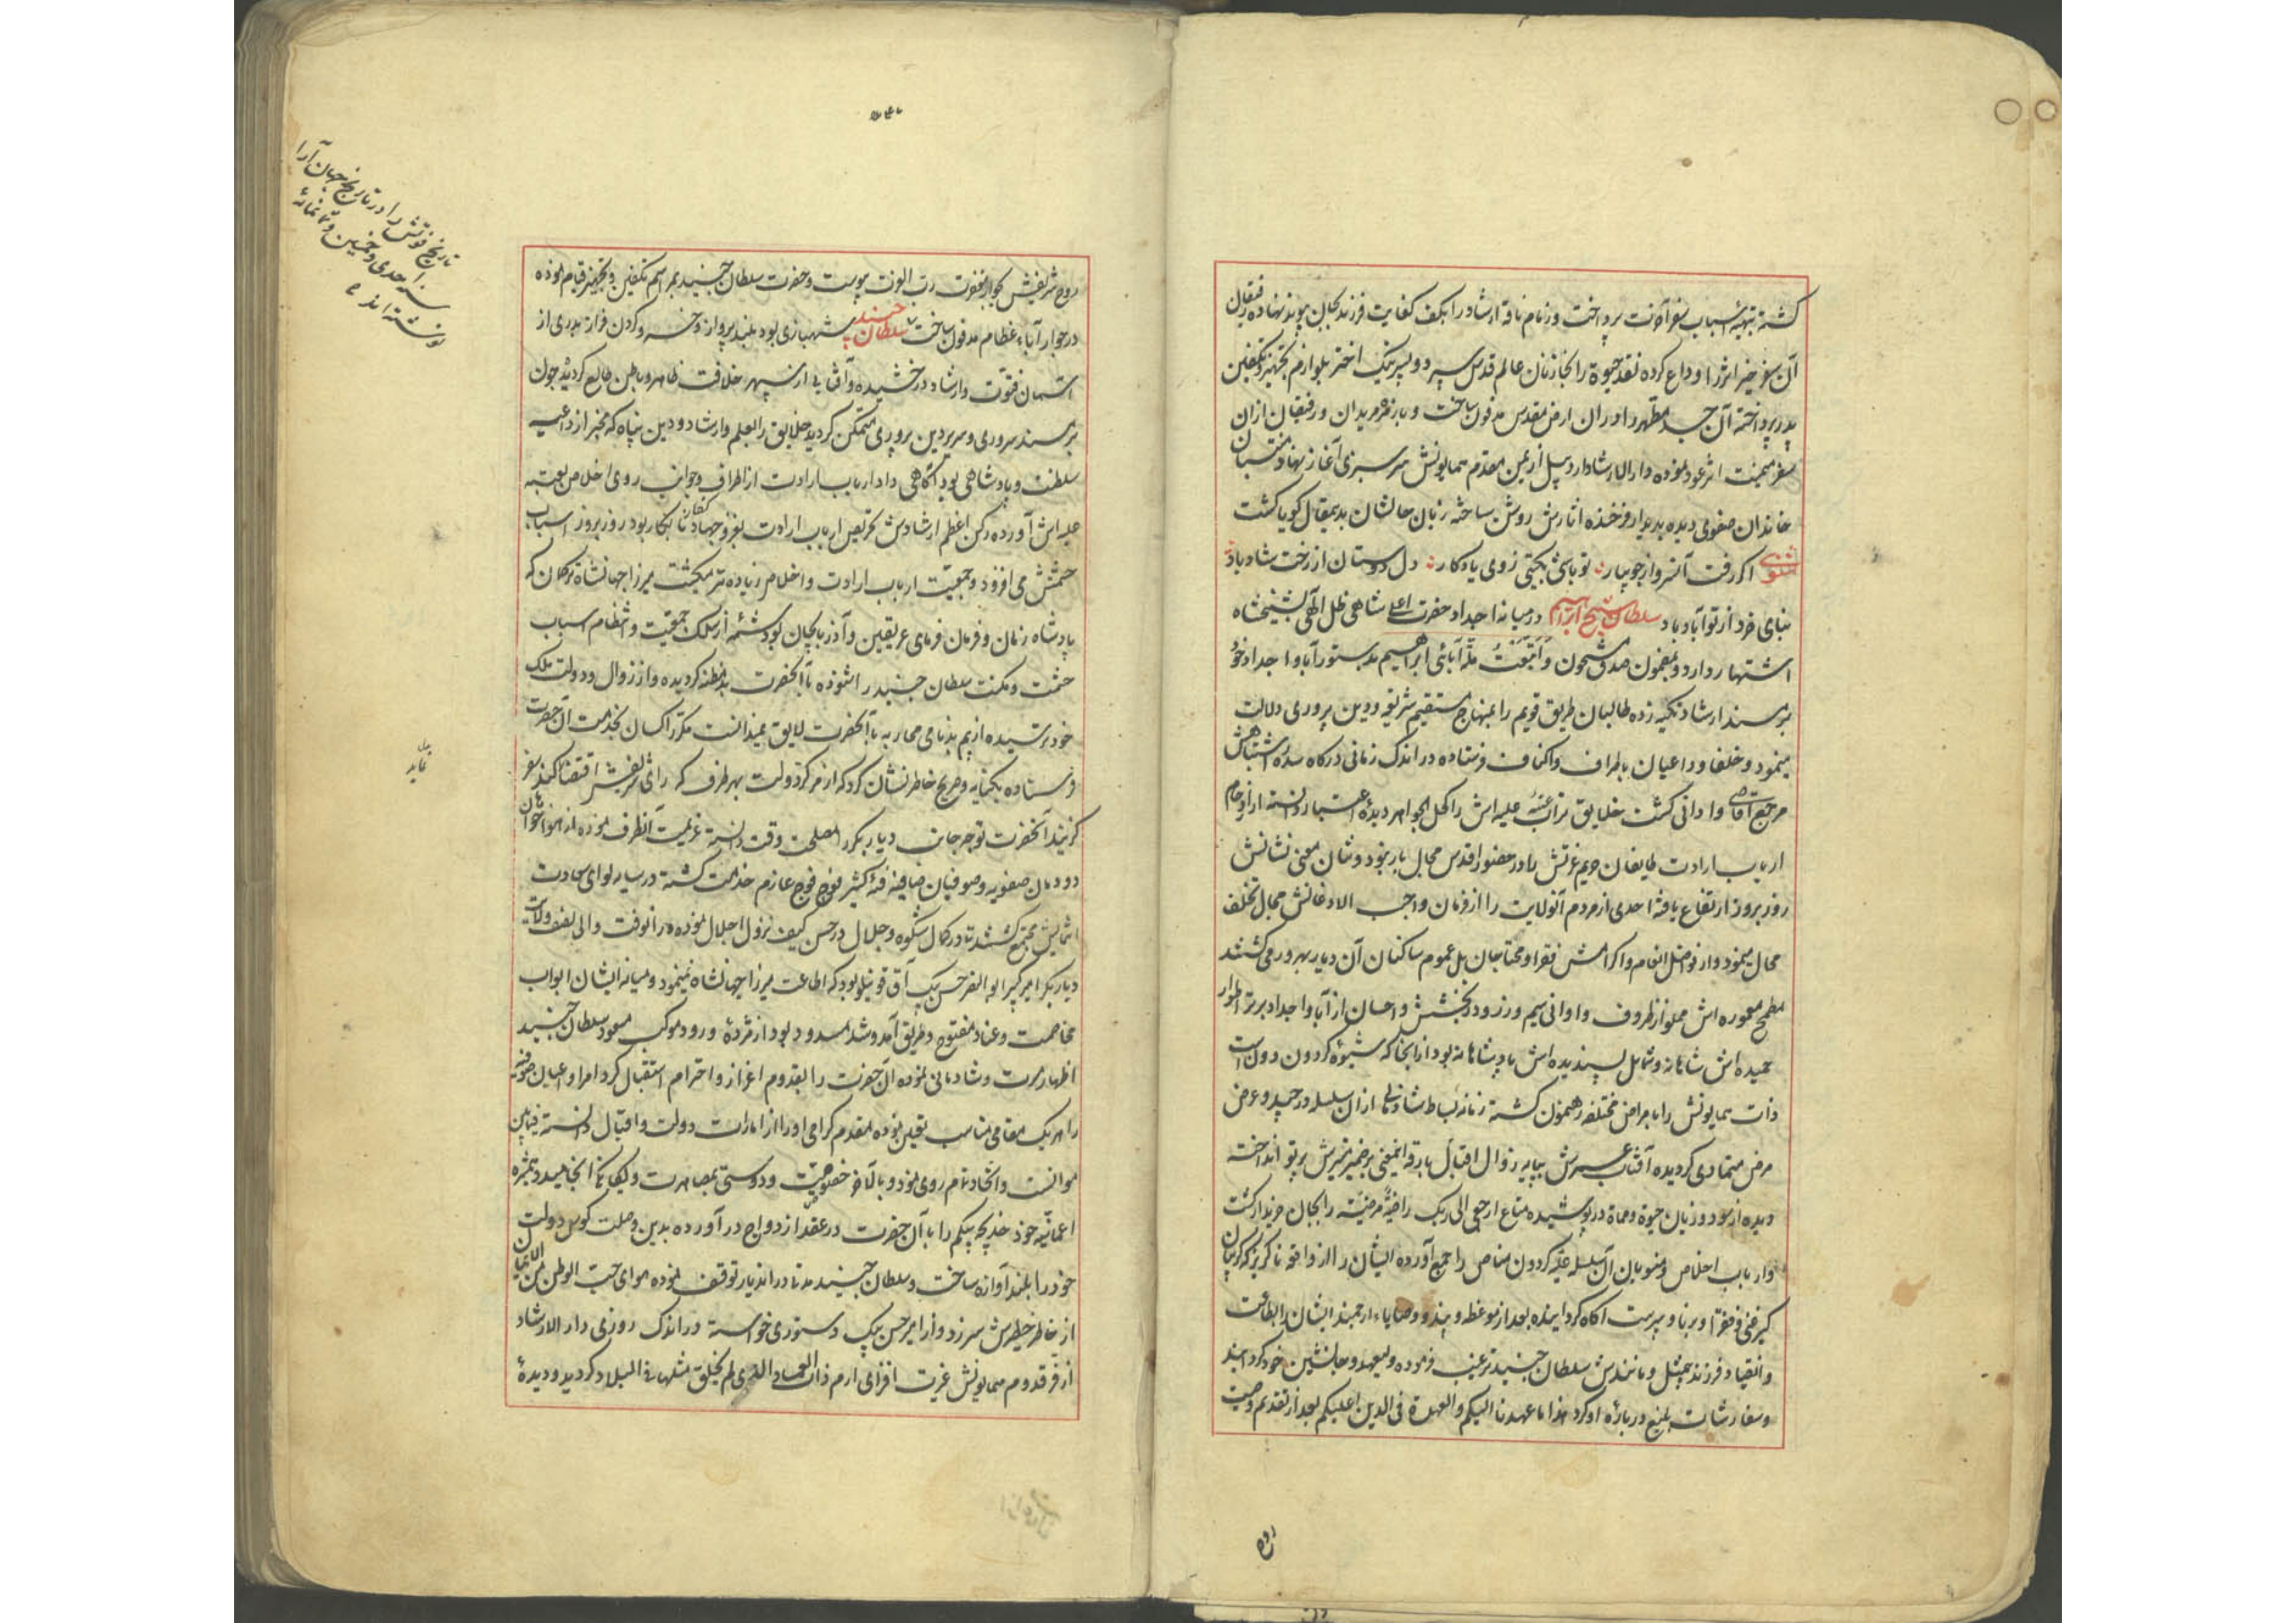 کشته بتهیهٔ اسباب سفر آخرت پرداخت و زمام ناقه ارشاد را بکف کفایت فرزند بجان پیوند نهاده رفیقان
آن سفر خیر اثر را وداع کرده نقد حیوة را بخازنان عالم قدس سپرد و پسر نیک اختر بلوازم تجهیز و تکفین
پدر پرداخته آن جسد مطهر را در ان ارض مقدس مدفون ساخت و با زمره مریدان و رفیقان از ان
سفر میمنت اثر عود نموده دار الارشاد اردبیل از یمن مقدم همایونش سرسبزی آغاز نهاد و منتسبان
خاندان صفوی دیده بدیدار فرخنده اثارش روشن ساخته زبان حالشان بدینمقال کویا کشت
مثنوی اکر رفت آن سرو از جویبار تو باشی بکیتی ز وی یادکار دل دوستان از رخت شاد باد
بنای خرد از تو آباد باد سلطان شیخ ابراهیم در میانه اجداد حضرت اعلی شاهی ظل الهی بشیخشاه
اشتهار دارد و بمضمون صدق مشحون و اتبعت ملة آبائی ابراهیم بدستور آبا و اجداد خود
بر مسند ارشاد تکیه زده طالبان طریق قویم را بمنهاج مستقیم شریعت و دین پروری دلالت
مینمود و خلفا و داعیان باطراف و اکناف فرستاده در اندک زمانی درکاه سدره اشتباهش
مرجع اقاصی و ادانی کشت خلایق تراب عتبه علیه اش را کحل الجواهر دیدهٔ اعتبار دانسته از ازدحام
ارباب ارادت طایفان حریم عزتش را در حضور اقدس مجال بار نبود و شان معنی نشانش
روز بروز ارتفاع یافته احدی از مردم آنولایت را از فرمان واجب الاذعانش مجال تخلف
محال مینمود و از فواضل انعام و اکرامش فقرا و محتاجان بل عموم ساکنان آن دیار بهره ور می کشتند
مطبخ معموره اش مملو از ظروف و اوانی سیم و زر بود و در بخشش و احسان از آبا و اجداد برتر اطوار
حمیده اش شاهانه و شمایل پسندیده اش پادشاهانه بود از انجا که شیوهٔ کردون دون است
ذات همایونش را بامراض مختلفه رهنمون کشته زمانه بساط شادمانی از ان سلسله در چید و عرض
مرض متمادی کردیده آفتاب عمرش بپایه زوال اقبال بارقه اینمعنی بر ضمیر منیرش پرتو انداخته
دیده از سود و زیان حیوة و مماة در پوشیده متاع ارجعی الی ربک راضیة مرضیة را بجان خریدار کشت
و ارباب اخلاص و منسوبان آن سلسله علیه کردون مناص را جمع آورده ایشان را از واقعه ناکزیر که کریبان
کیر غنی و فقرا و برنا و پیرست آکاه کردانیده بعد از موعظه و پند و وصایاء ارجمند ایشان را بطاعت
و انقیاد فرزند بیمثل و مانندش سلطان جنید ترغیب فرموده ولیعهد و جانشین خود کردانید
و سفارشات بلیغ در بارهٔ او کرد هذا ما عهدنا الیکم و العهدة فی الدین علیکم بعد از تقدیم وصیت
روح
روح شریفش بجوار مغفرت رب العزت پیوست و حضرت سلطان جنید بمراسم تکفین و تجهیز قیام نموده
در جوار آباء عظام مدفون ساخت سلطان جنید شهبازی بود بلند پرواز و خسرو کردن فراز بدری از
آسمان فتوت و ارشاد درخشیده و آفتابی از سپهر خلافت ظاهر و باطن طالع کردیده چون
بر مسند سروری و سریر دین پروری متمکن کردید خلایق را بعلم و ارشاد و دین پناه که مخبر از داعیه
سلطنت و پادشاهی بود آکاهی داد ارباب ارادت از اطراف و جوانب روی اخلاص بعتبه
علیه اش آورده رکن اعظم ارشادش تحریص ارباب ارادت بغزو جهاد کفار نابکار بود روز بروز اسباب
حشمتش می افزود و جمعیت ارباب ارادت و اخلاص زیاده تر میکشت میرزا جهانشاه ترکمان که
پادشاه زمان و فرمان فرمای عریقین و آذربایجان بود شمهٔ از سلک جمعیت و انتظام اسباب
حشمت و مکنت سلطان جنید را شنوده با آنحضرت بدمظنه کردیده و از زوال دولت ملک
خود ترسیده از بیم بدنامی محاربه با آنحضرت لایق نمیدانست مکرر اکسان بخدمت آن حضرت
فرستاده بکنایه و صریح خاطرنشان کرد که از مرکز دولت بهر طرف که رای شریفش اقتضا کند سفر
کزیند آنحضرت توجه جانب دیار بکر را مصلحت وقت دانسته عزیمت آنطرف نموده از هواخواهان
دودمان صفویه و صوفیان صافیه فئهٔ کثیر فوج فوج عازم خدمت کشته در سایه لوای سعادت
انتمایش مجتمع کشتند تا در کمال شکوه و جلال در حصن کیف نزول اجلال نموده در آنوقت والی بعضی ولایات
دیار بکر امیر کبیر ابو النصر حسن بیک آق قوینلو بود که اطاعت میرزا جهانشاه نمینمود و میانه ایشان ابواب
مخاصمت و عناد مفتوح و طریق آمد و شد مسدود بود از مژدهٔ ورود موکب مسعود سلطان جنید
اظهار مسرت و شادمانی نموده آن حضرت را بقدوم اعزاز و احترام استقبال کرد امرا و اعیان صوفیه
را هر یک مقامی مناسب تعیین نموده مقدم کرامی او را از امارات دولت و اقبال دانسته فیمابین
موانست و اتحاد تمام روی نمود و بالاخر خصوصیت و دوستی بمصاهرت و یکانکی انجامید و همشیره
اعیانیه خود خدیجه بیکم را با آن حضرت در عقد ازدواج در آورده بدین وصلت کوس دولت
خود را بلند آوازه ساخت و سلطان جنید مدتها در اندیار توقف نموده هوای حب الوطن من الایمان
از خاطر خطیرش سر زد و از امیر حسن بیک دستوری خواسته در اندک روزی دار الارشاد
از فر قدوم همایونش غیرت افزای ارم ذات العماد التی لم یخلق مثلها فی البلاد کردید و دیدهٔ
تاریخ فوتش را در تاریخ جهان آرا
سنه احدی و خمسین و ثمانمائه
نوشته اند